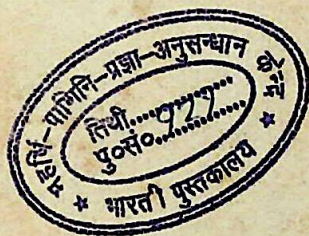 महर्षि-पाणिनि-प्रज्ञा-अनुसन्धान केन्द्र
तिथी..................
पु०सं०...927...........
* भारती पुस्तकालय *